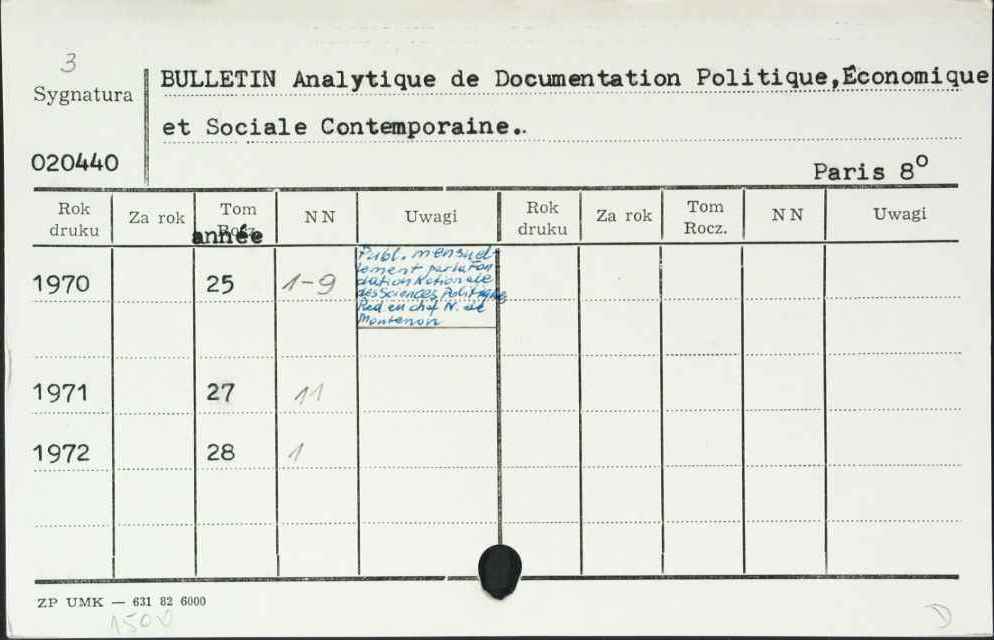 3
Sygnatura
BULLETIN Analytique de Documentation Politique,Économique
et Sociale Contemporaine..
020440
Paris 8º
Rok druku Za rok Tom Rocz. NN Uwagi Rok druku Za rok Tom Rocz. NN Uwagi
année
Publ. mensuel-
lement par la Fon
dation Nationale
des Sciences Politiques
Red en chef N. de
Montenon
1970 25 1-9
1971 27 11
1972 28 1
ZP UMK — 631 82 6000
1500
D